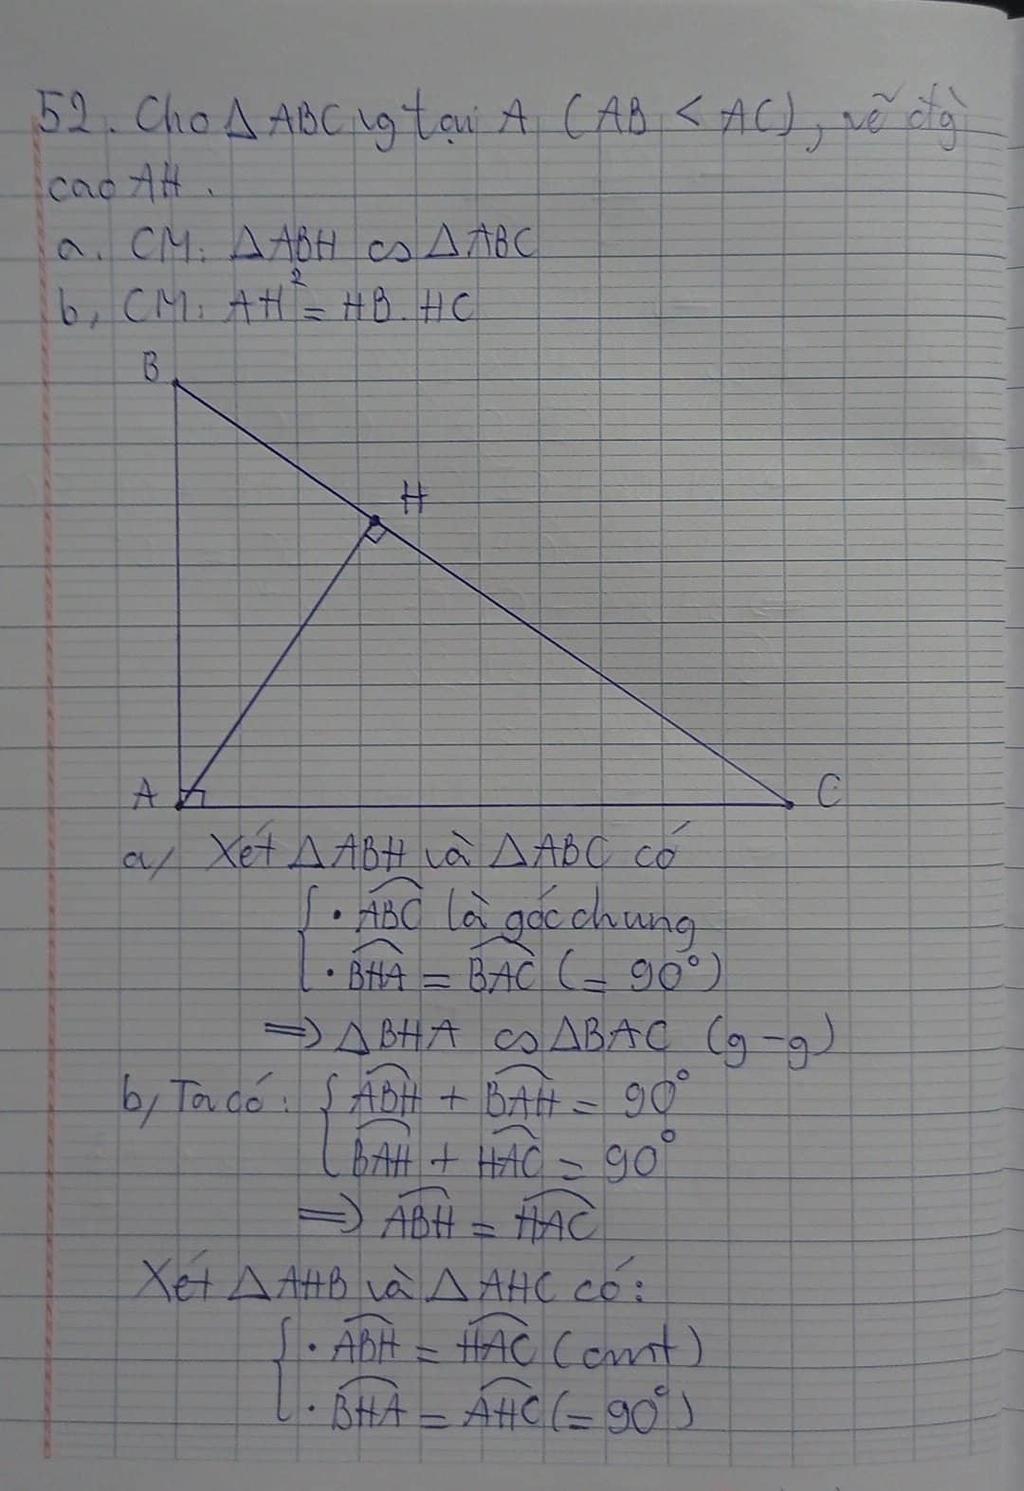 52. Cho Δ ABC vg tại A (AB < AC), vẽ đg
cao AH.
a. CM: ΔABH ∽ ΔABC
b, CM: AH² = HB.HC
B
H
A
C
a, Xét ΔABH và ΔABC có
{ • ABC là góc chung
• BHA = BAC (= 90°)
=> ΔBHA ∽ ΔBAC (g-g)
b, Ta có: { ABH + BAH = 90°
BAH + HAC = 90°
=> ABH = HAC
Xét ΔAHB và ΔAHC có:
{ • ABH = HAC (cmt)
• BHA = AHC (= 90°)